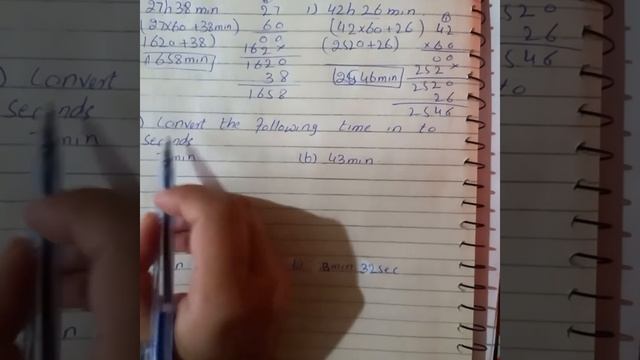 27h 38 min 27 i) 42h 26 min
(27x60 + 38min) 60 (42x60+26) 42
1620 + 38) 00 (2520+26) x60
1658min 162x 00
1620 2546min 252x
38 2520
1658 26
2546
Convert the following time in to
seconds
min (b) 43min
8min 32sec